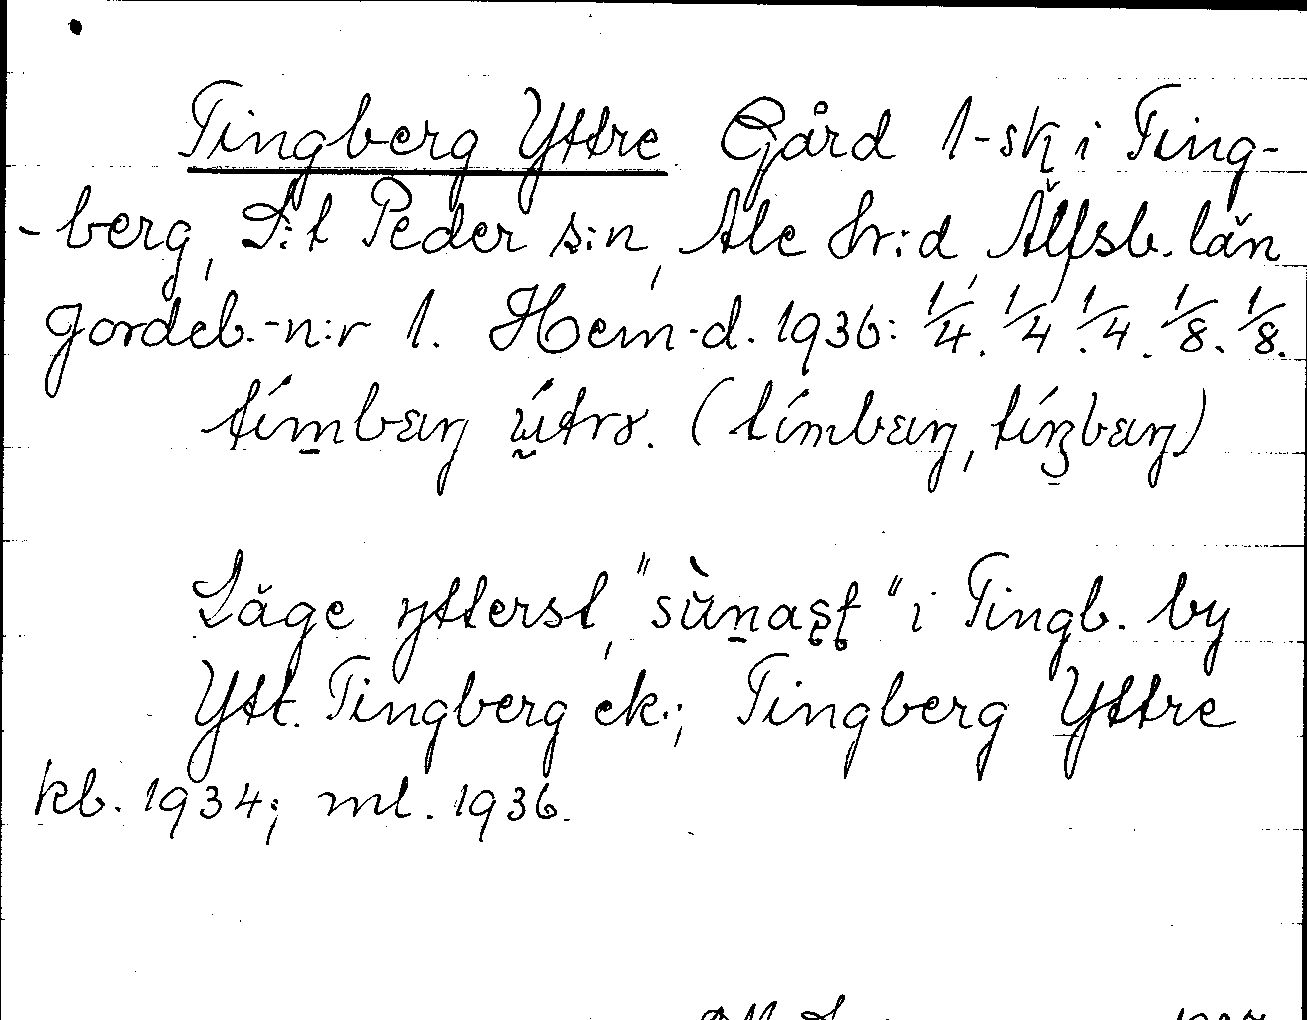 Tingberg Yttre. Gård 1-sk i Ting-
-berg, S:t Peder s:n, Ale hr:d, Älfsb. län
Jordeb.-n:r 1. Hem-d. 1936: 1/4. 1/4. 1/4. 1/8. 1/8.
Läge ytterst, " " i Tingb. by
Ytt. Tingberg ek.; Tingberg Yttre
kb. 1934; ml. 1936.